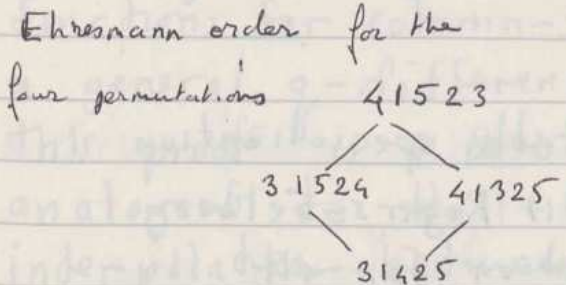 Ehresmann order for the
four permutations 41523
31524 41325
31425